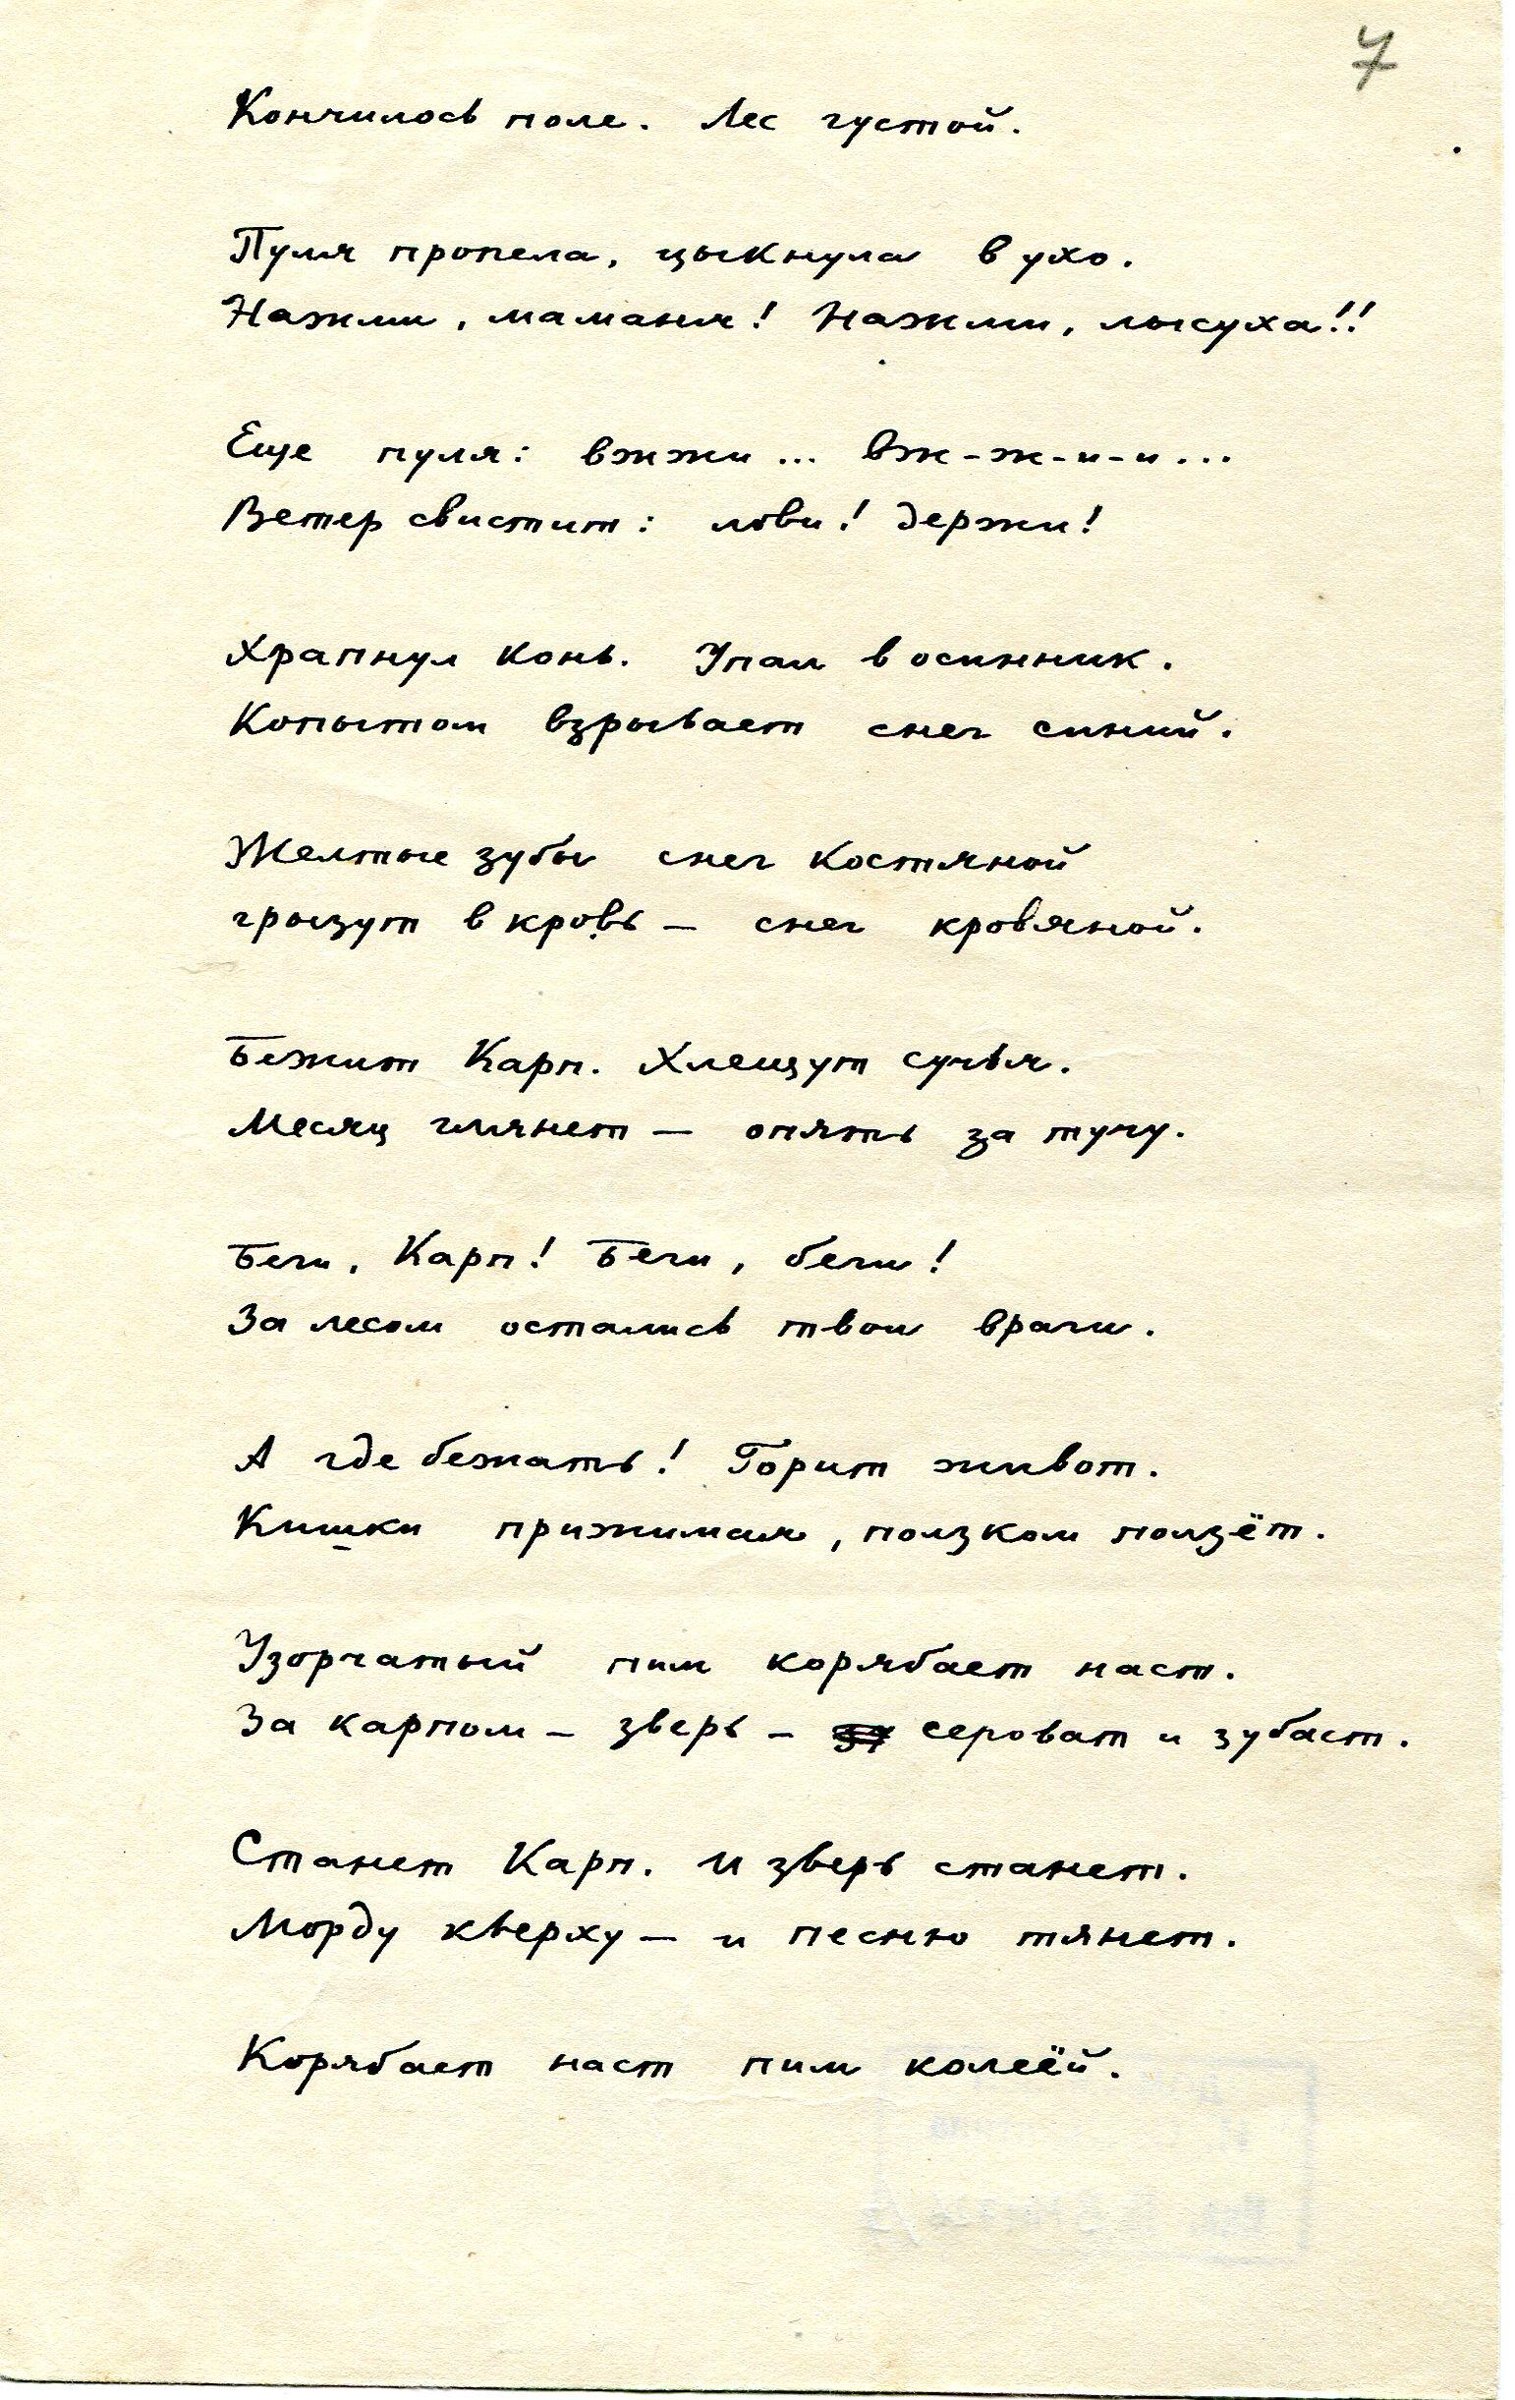 7
Кончилось поле. Лес густой.
Пуля пропела, цыкнула в ухо.
Нажми, маманя! Нажми, лысуха!!
Еще пуля: вжжи... вж-ж-и-и...
Ветер свистит: лови! держи!
Храпнул конь. Упал в осинник.
Копытом взрывает снег синий.
Желтые зубы снег костяной
грызут в кровь — снег кровяной.
Бежит Карп. Хлещут сучья.
Месяц глянет — опять за тучу.
Беги, Карп! Беги, беги!
За лесом остались твои враги.
А где бежать! Горит живот.
Кишки прижимая, ползком ползёт.
Узорчатый пим корябает наст.
За карпом — зверь — сероват и зубаст.
Станет Карп. И зверь станет.
Морду кверху — и песню тянет.
Корябает наст пим колеёй.